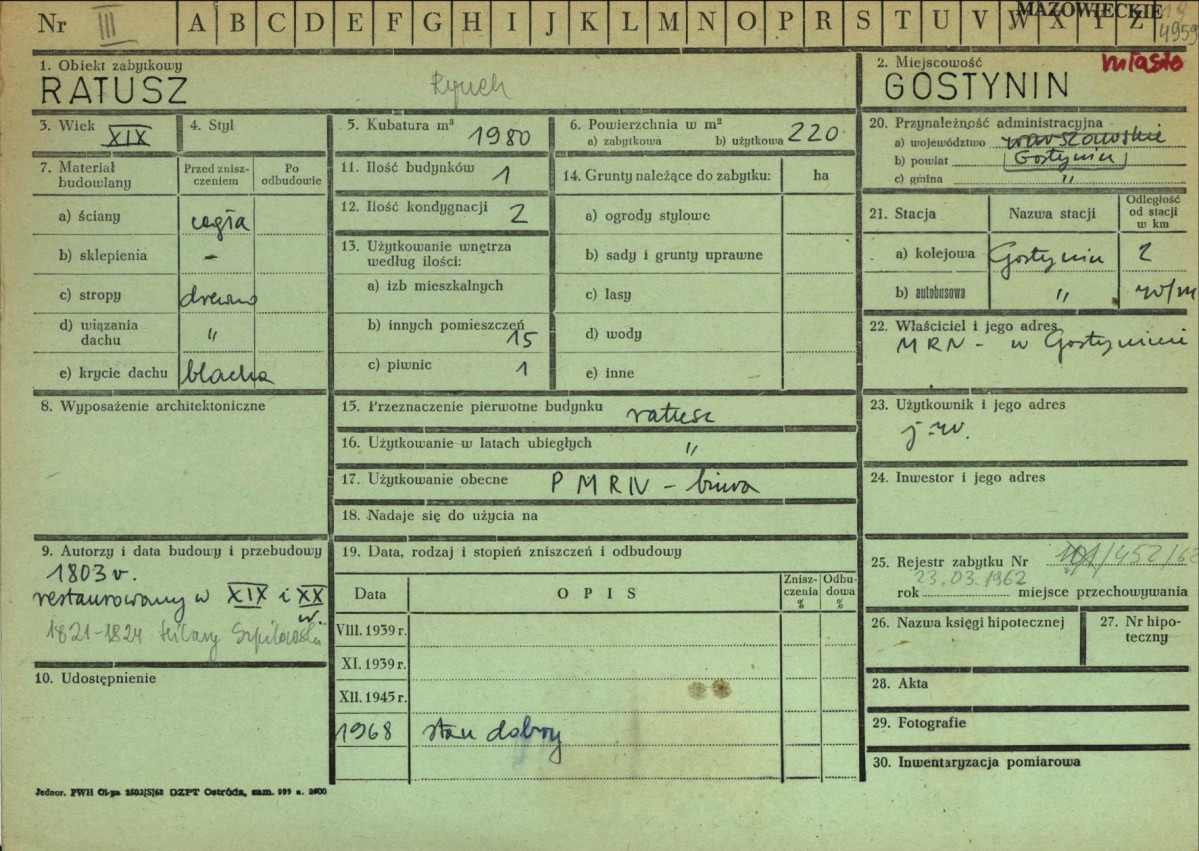 Nr III A B C D E F G H I J K L M N O P R S T U V W X Y Z
MAZOWIECKIE
4959
1. Obiekt zabytkowy
RATUSZ
Rynek
2. Miejscowość
miasto
GOSTYNIN
3. Wiek XIX
4. Styl
5. Kubatura m³ 1980
6. Powierzchnia w m²
a) zabytkowa b) użytkowa 220
7. Materiał budowlany
Przed zniszczeniem
Po odbudowie
a) ściany cegła
b) sklepienia -
c) stropy drewno
d) wiązania dachu "
e) krycie dachu blacha
8. Wyposażenie architektoniczne
9. Autorzy i data budowy i przebudowy
1803 r.
restaurowany w XIX i XX
w.
1821-1824 Hilary Szpilowski
10. Udostępnienie
11. Ilość budynków 1
12. Ilość kondygnacji 2
13. Użytkowanie wnętrza
według ilości:
a) izb mieszkalnych
b) innych pomieszczeń 15
c) piwnic 1
14. Grunty należące do zabytku: ha
a) ogrody stylowe
b) sady i grunty uprawne
c) lasy
d) wody
e) inne
15. Przeznaczenie pierwotne budynku ratusz
16. Użytkowanie w latach ubiegłych "
17. Użytkowanie obecne P MRN - biura
18. Nadaje się do użycia na
19. Data, rodzaj i stopień zniszczeń i odbudowy
Data
OPIS
Zniszczenia %
Odbudowa %
VIII. 1939 r.
XI. 1939 r.
XII. 1945 r.
1968 stan dobry
20. Przynależność administracyjna
a) województwo warszawskie
b) powiat Gostynin
c) gmina "
21. Stacja
Nazwa stacji
Odległość od stacji w km
a) kolejowa Gostynin 2
b) autobusowa " w/m
22. Właściciel i jego adres
MRN - w Gostyninie
23. Użytkownik i jego adres
j.w.
24. Inwestor i jego adres
25. Rejestr zabytku Nr 101/452/62
23.03.1962
rok miejsce przechowywania
26. Nazwa księgi hipotecznej
27. Nr hipoteczny
28. Akta
29. Fotografie
30. Inwentaryzacja pomiarowa